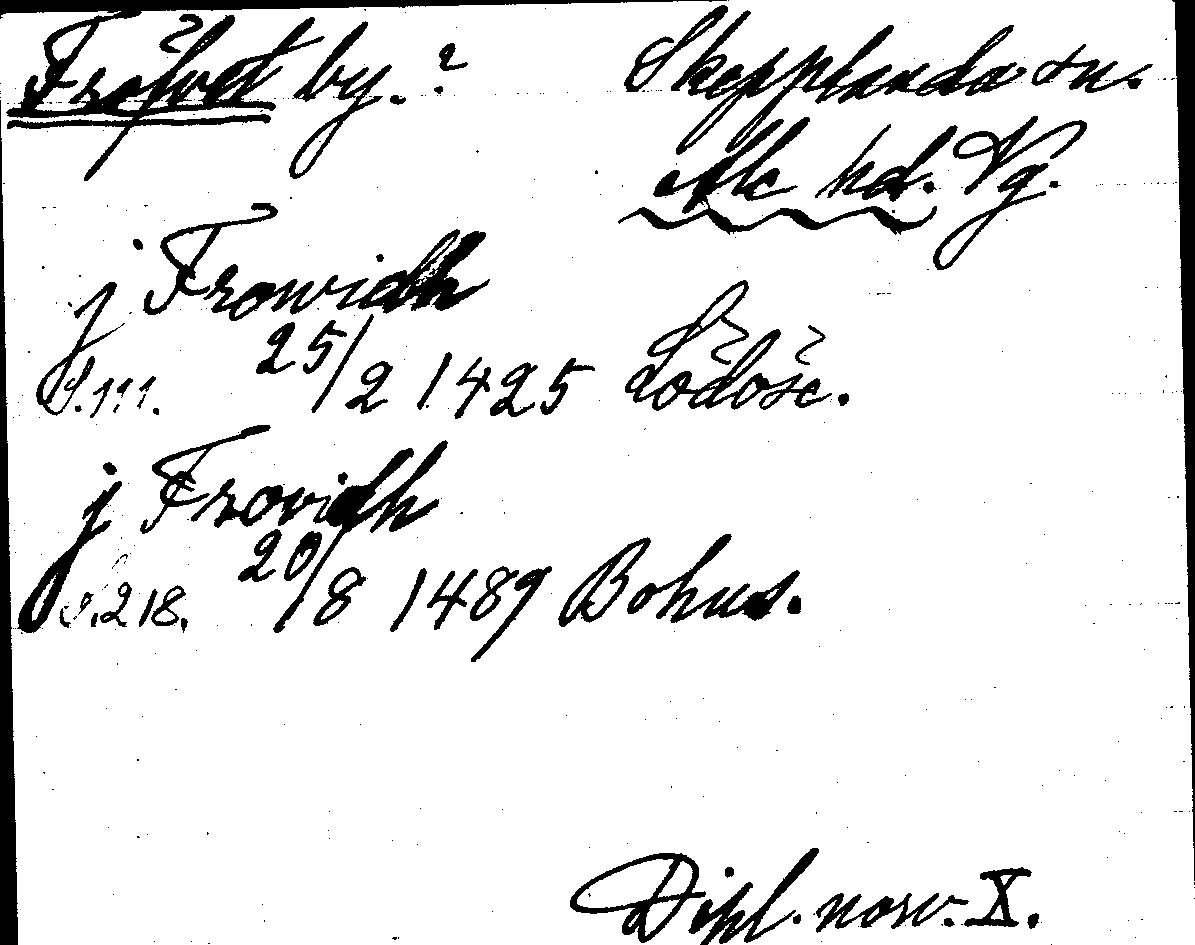 Frövet by. ? Skepplanda sn.
Ale hd. Vg.
j Frowidh
S. 111. 25/2 1425 Lödöse.
j Frovidh
S. 218. 20/8 1489 Bohus.
Dipl. norv. X.